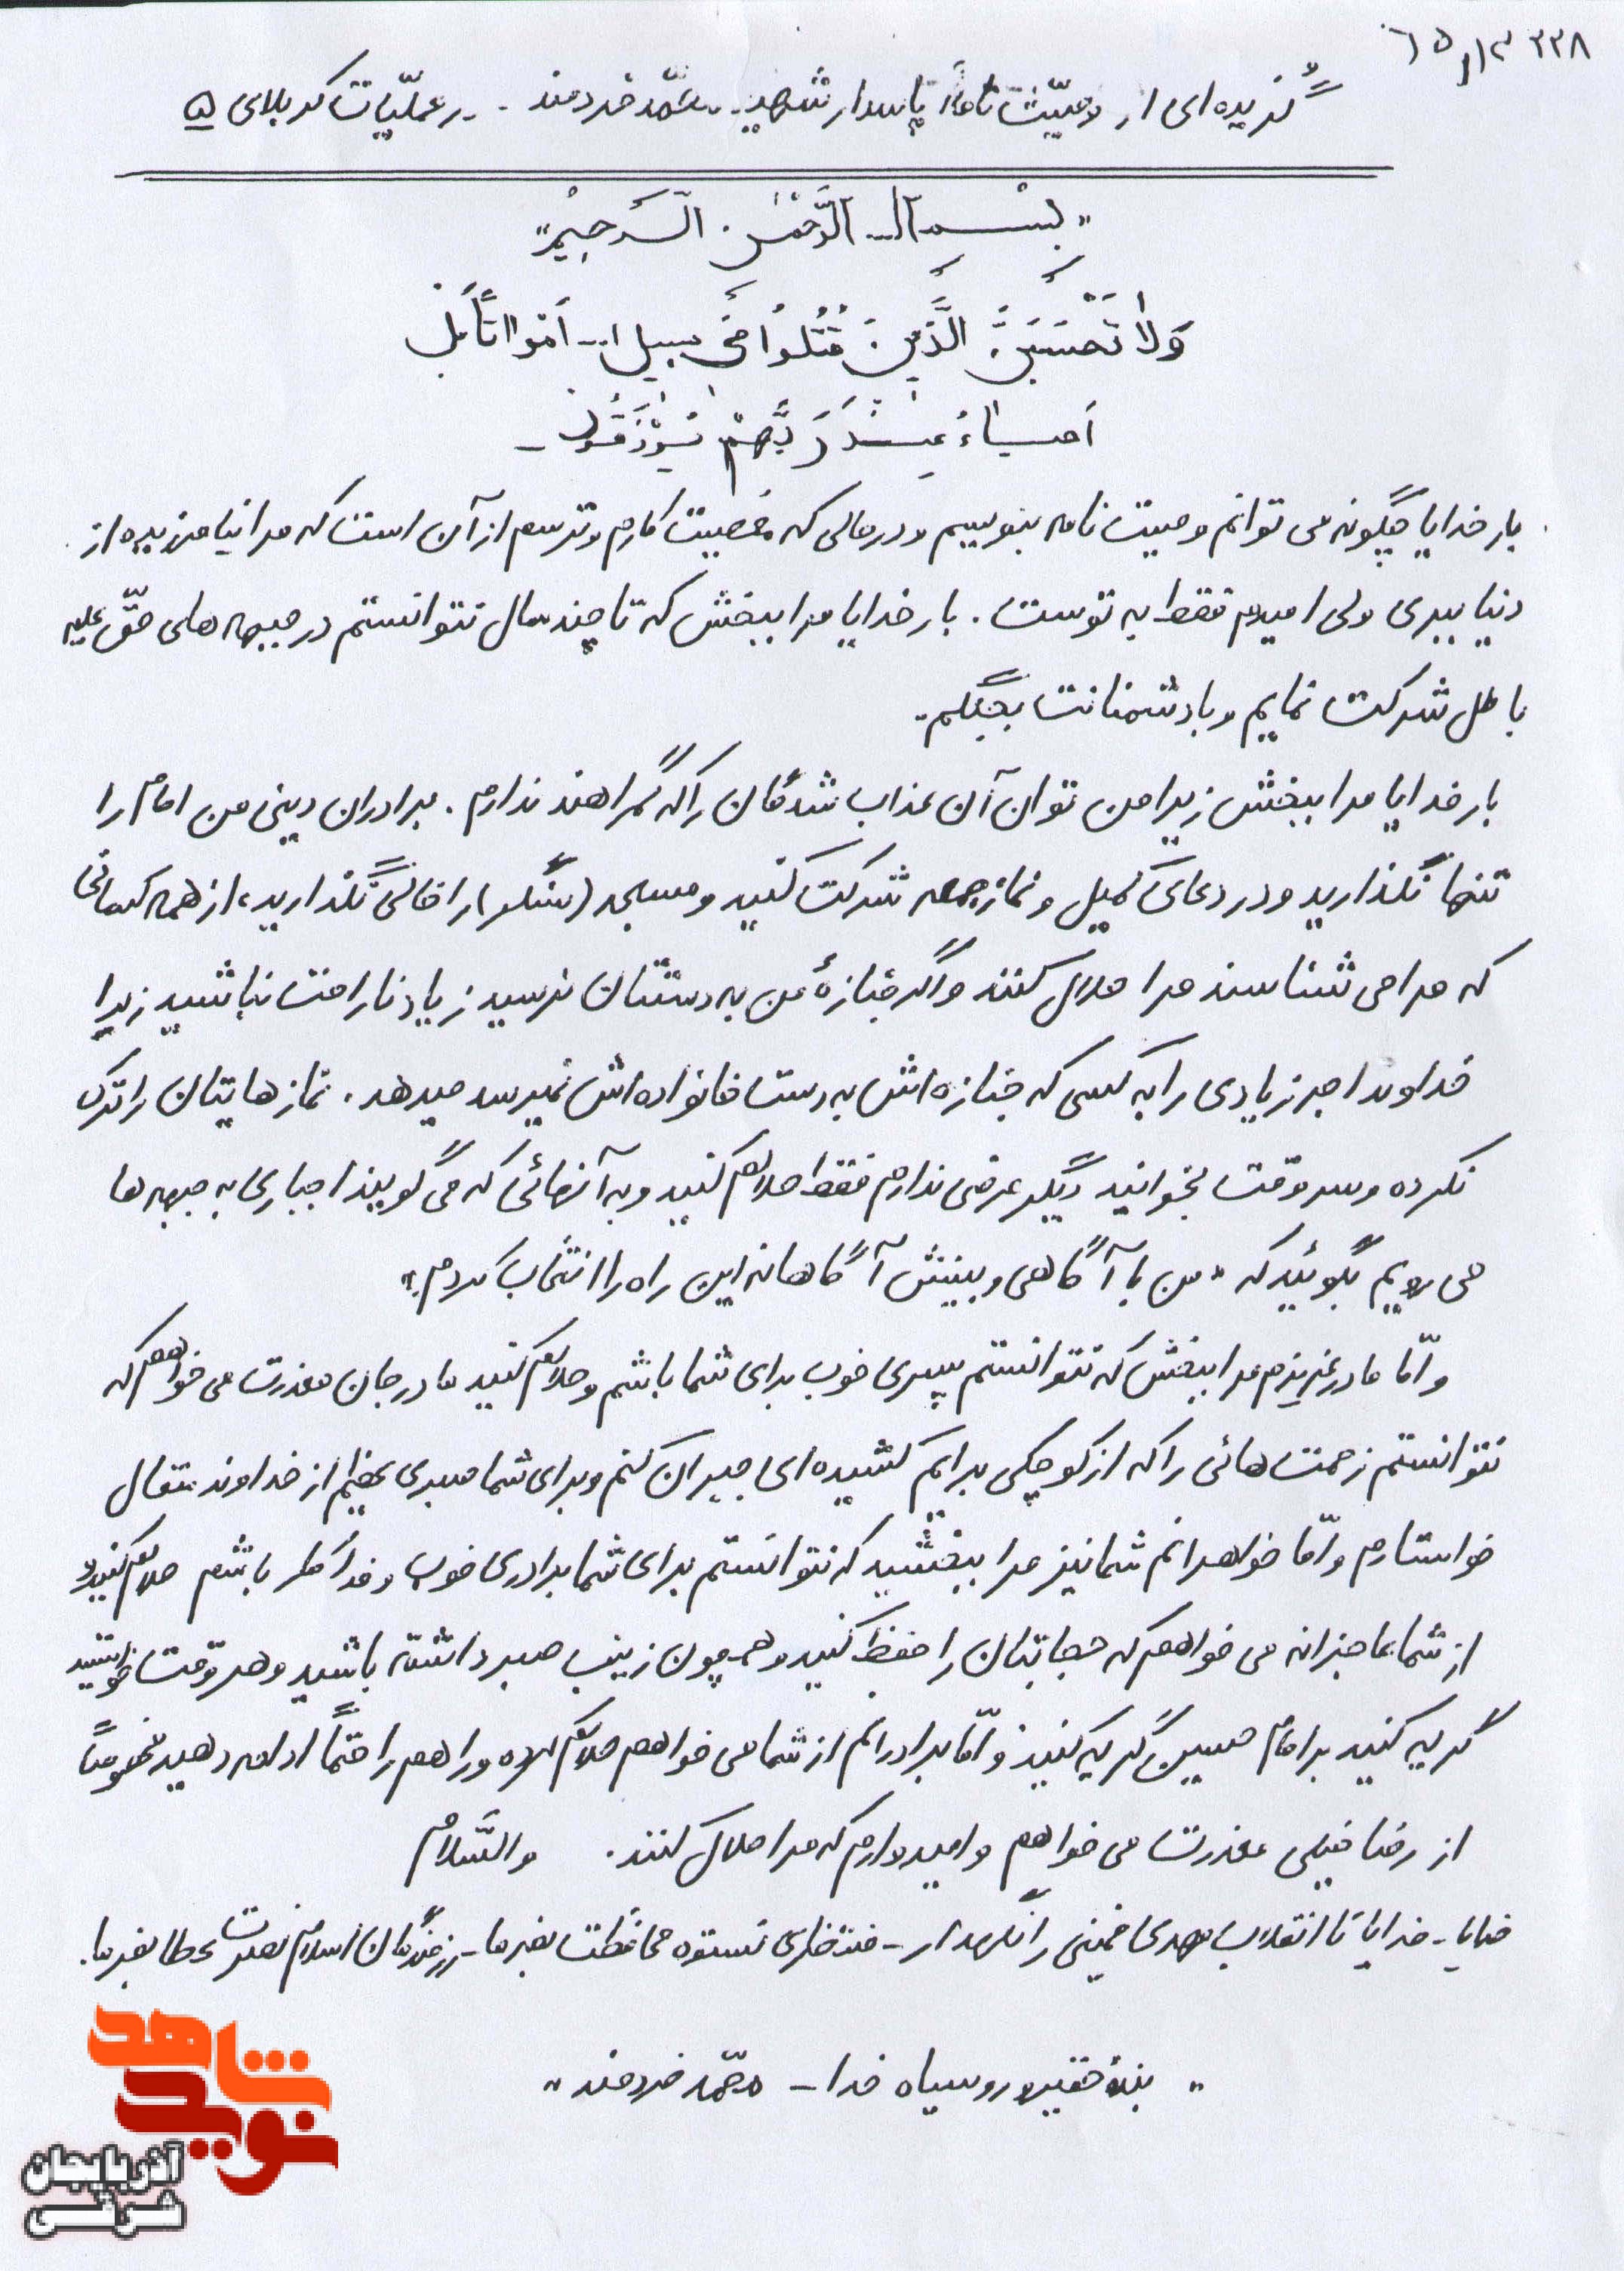 گزیده‌ای از وصیّت نامهٔ پاسدار شهید محمّد خردمند - در عملیّات کربلای ۵
"بسم الله الرَّحمن الرَّحیم"
وَلا تَحْسَبَنَّ الَّذینَ قُتِلُوا فی سبیل ا... اَمواتاً بَل
اَحیاءُ عِنْدَ رَبِّهِمْ یُرْزَقُون -
بار خدایا چگونه می توانم وصیت نامه بنویسم و در حالی که معصیت کارم و ترسم از آن است که مرا نیامرزیده از
دنیا ببری ولی امیدم فقط به توست. بار خدایا مرا ببخش که تا چند سال نتوانستم در جبهه های حقّ علیه
باطل شرکت نمایم و با دشمنانت بجنگم.
بار خدایا مرا ببخش زیرا من توان آن عذاب شدگان را که گمراهند ندارم. برادران دینی من امام را
تنها نگذارید و در دعای کمیل و نماز جمعه شرکت کنید و مسجد (سنگر) را خالی نگذارید، از همه کسانی
که مرا می شناسند مرا حلال کنند و اگر جنازهٔ من به دستتان نرسید زیاد ناراحت نباشید زیرا
خداوند اجر زیادی را به کسی که جنازه اش به دست خانواده اش نمیرسد میدهد. نمازهایتان را ترک
نکرده و سر وقت بخوانید دیگر عرضی ندارم فقط حلالم کنید و به آنهائی که می گویند اجباری به جبهه ها
می رویم بگوئید که "من با آگاهی و بینش آگاهانه این راه را انتخاب کردم."
و امّا مادر عزیزم مرا ببخش که نتوانستم پسری خوب برای شما باشم و حلالم کنید مادر جان معذرت می خواهم که
نتوانستم زحمت هائی را که از کوچکی برایم کشیده ای جبران کنم و برای شما صبری عظیم از خداوند متعال
خواستارم و امّا خواهرانم شما نیز مرا ببخشید که نتوانستم برای شما برادری خوب و فداکار باشم حلالم کنید و
از شما عاجزانه می خواهم که حجابتان را حفظ کنید و همچون زینب صبر داشته باشید و هر وقت خواستید
گریه کنید بر امام حسین گریه کنید و امّا برادرانم از شما می خواهم حلالم کرده و راهم را حتماً ادامه دهید مخصوصاً
از رضا خیلی معذرت می خواهم و امیدوارم که مرا حلال کنند. والسَّلام
خدایا - خدایا تا انقلاب مهدی خمینی را نگهدار - منتظری نستوه محافظت بفرما - رزمندگان اسلام نصرت عطا بفرما.
"بندهٔ حقیر و روسیاه خدا - محمّد خردمند"
نوید شاهد
آذربایجان
شرقی